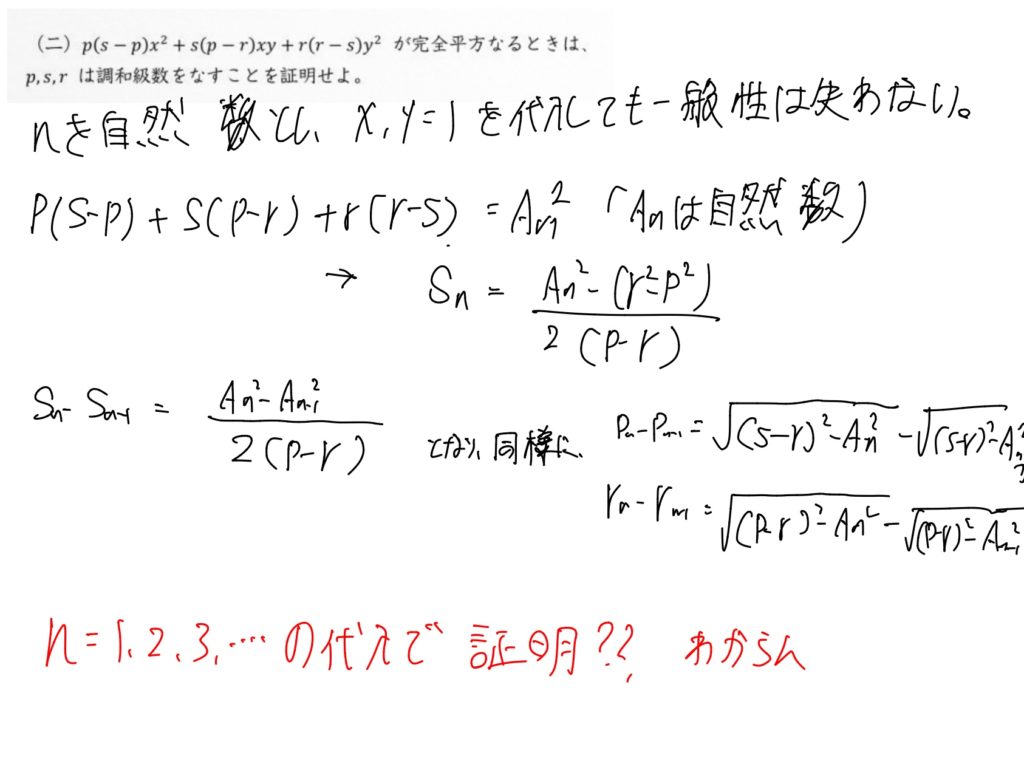 (二) p(s − p)x² + s(p − r)xy + r(r − s)y² が完全平方なるときは、
p, s, r は調和級数をなすことを証明せよ。
nを自然数とし、x, y = 1 を代入しても一般性は失わない。
P(S-p) + S(p-r) + r(r-s) = An² (Anは自然数)
→ Sn = (An² - (r² - p²)) / 2(p-r)
Sn - Sn-1 = (An² - An-1²) / 2(p-r) となり、同様に、
Pn - Pn-1 = √((s-r)² - An²) - √((s-r)² - An-1²)
rn - rn-1 = √((p-r)² - An²) - √((p-r)² - An-1²)
n = 1, 2, 3, … の代入で 証明?? わからん